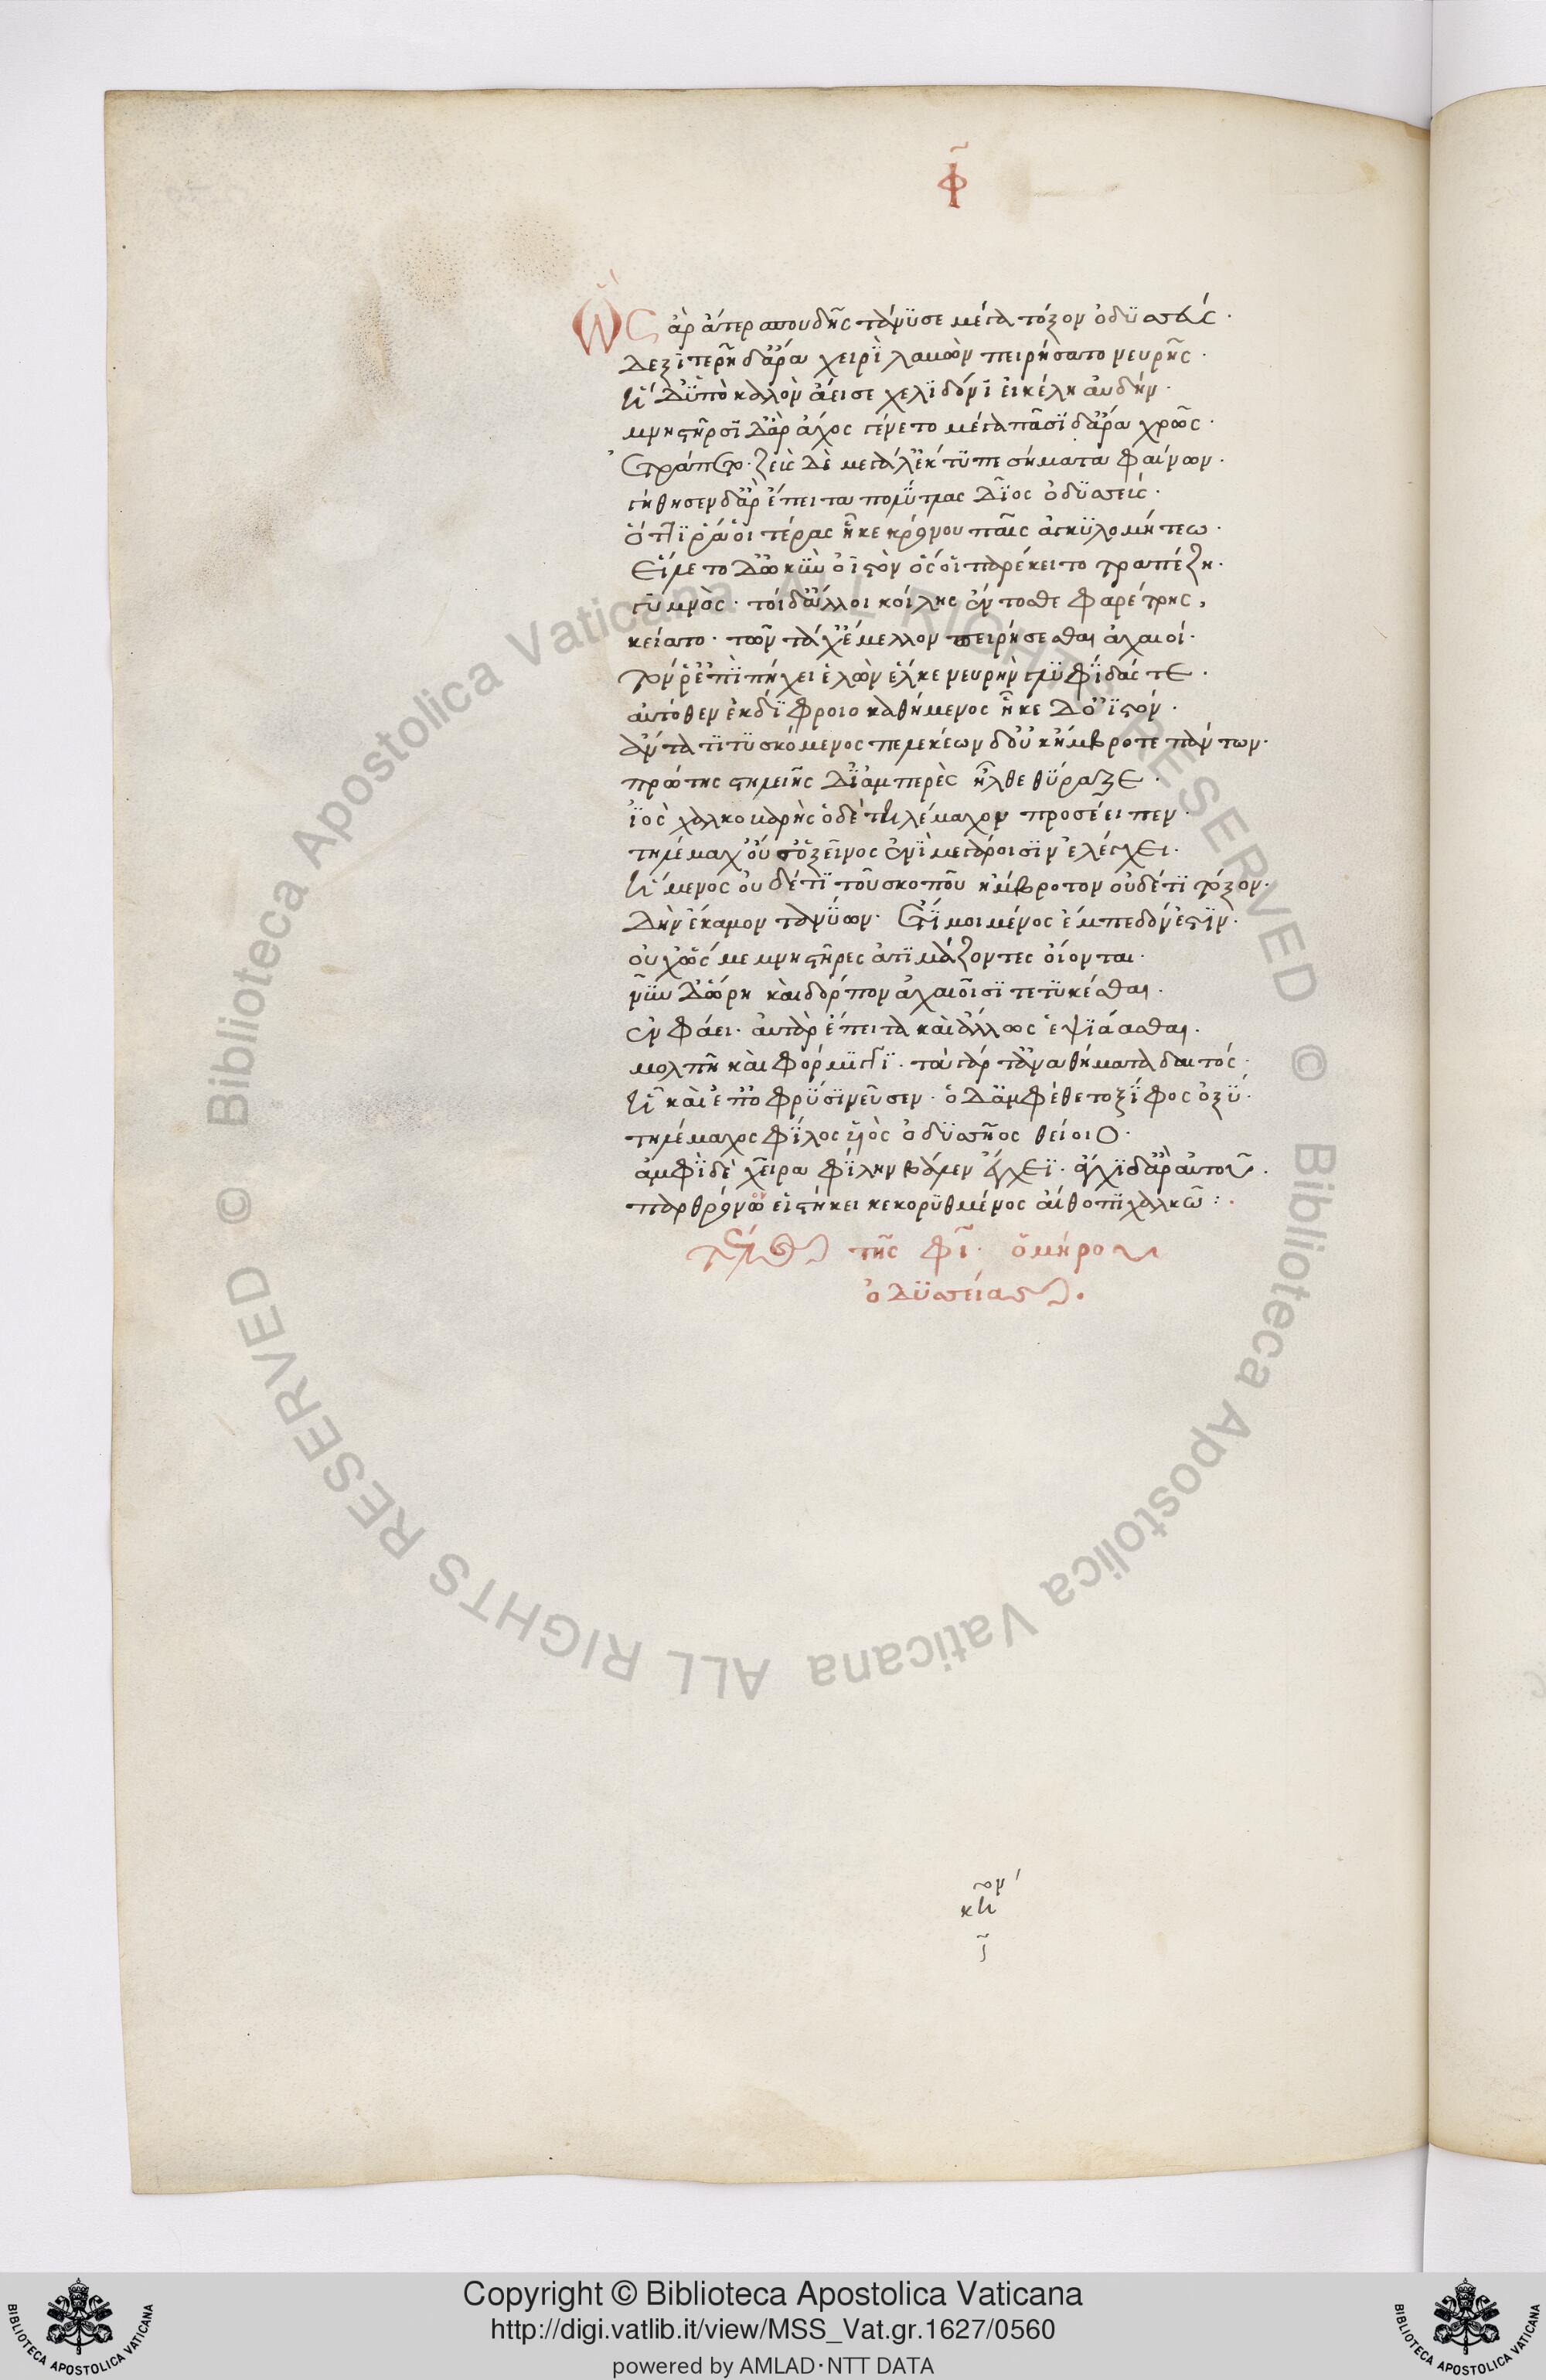 Φ̃
Ὣς ἂρ ἄτερ σπουδῆς τάνϋσε μέγα τόξον ὀδϋσσεύς·
Δεξϊτερῆ δἄρα χειρῒ λαβὼν πειρήσατο νευρῆς·
ἡ δ̓ϋπὸ καλὸν ἄεισε χελϊδόνϊ εἰκέλη ἀυδήν·
μνηστῆρσϊ δ̓ὰρ ἄχος γένετο μέγα πᾶσϊ δἄρα χρὼς·
ἐτράπετο· ζεὺς δὲ μεγάλ̓ἔκτϋπε σήματα φαίνων·
γήθησεν δἂρ ἔπειτα πολΰτλας δῖος ὀδϋσσεύς·
ὅττϊ ῥά ὁι τέρας ἧκε κρόνου πάϊς ἀγκϋλομήτεω·
Εἵλετο δ̓ὠκῢν ὀϊστὸν ὅς ὁι παρέκειτο τραπέζη·
γϋμνὸς· τοὶ δ̓ἄλλοι κοίλης ἔντοσθε φαρέτρης,
κείατο· τῶν τάχ̓ἔμελλον πειρήσεσθαι ἀχαιοί·
τόν ῥ̓ἐπῒ πήχει ἑλὼν ἕλκε νευρὴν γλϋφΐδάς τε·
αὐτόθεν ἐκ δΐφροιο καθήμενος ἧκε δ̓ὀϊστόν·
ἄντα τϊτϋσκόμενος πελεκέων δ̓ὀυκ ἤμβροτε πάντων·
πρώτης στηλειῆς δϊαμπερὲς ἦλθε θΰραζε·
ἰὸς χαλκοβαρὴς ὁ δὲ τηλέμαχον προσέειπεν·
τηλέμαχ̓ ὀύ σ̓ὁ ξεῖνος ἐνῒ μεγάροισϊν ἐλέγχει·
ἥμενος ὀυδέ τϊ τοῦ σκοποῦ ἤμβροτον ὀυδέ τϊ τόξον·
Δὴν ἔκαμον τανΰων· ἔτϊ μοι μένος ἔμπεδόν ἐστϊν·
ὀυχ̓ὥς με μνηστῆρες ἀτϊμάζοντες ὄιονται·
νῦν δ̓ὥρη καὶ δόρπον ἀχαιοῖσϊ τετϋκέσθαι·
ἐν φάει· ἀυτὰρ ἔπειτα καὶ ἄλλως ἑψϊάασθαι·
μολπῆ καὶ φόρμϊγγϊ· τὰ γάρ τ̓ἀναθήματα δαιτός·
ἦ καὶ ἐπ̓ ὀφρΰσϊ νεῦσεν· ὁ δ̓ἀμφέθετο ξΐφος ὀξΰ·
τηλέμαχος φΐλος ϋἱὸς ὀδϋσσῆος θείοιο·
ἀμφῒ δὲ χεῖρα φΐλην βάλεν ἔγχεϊ· ἄγχϊ δ̓ὰρ ἀυτοῦ·
πὰρ θρόνον εἱστήκει κεκορϋθμένος αἴθοπϊ χαλκῶ:·
τέλος τῆς φῖ· ὁμήρου
ὀδϋσσείας·